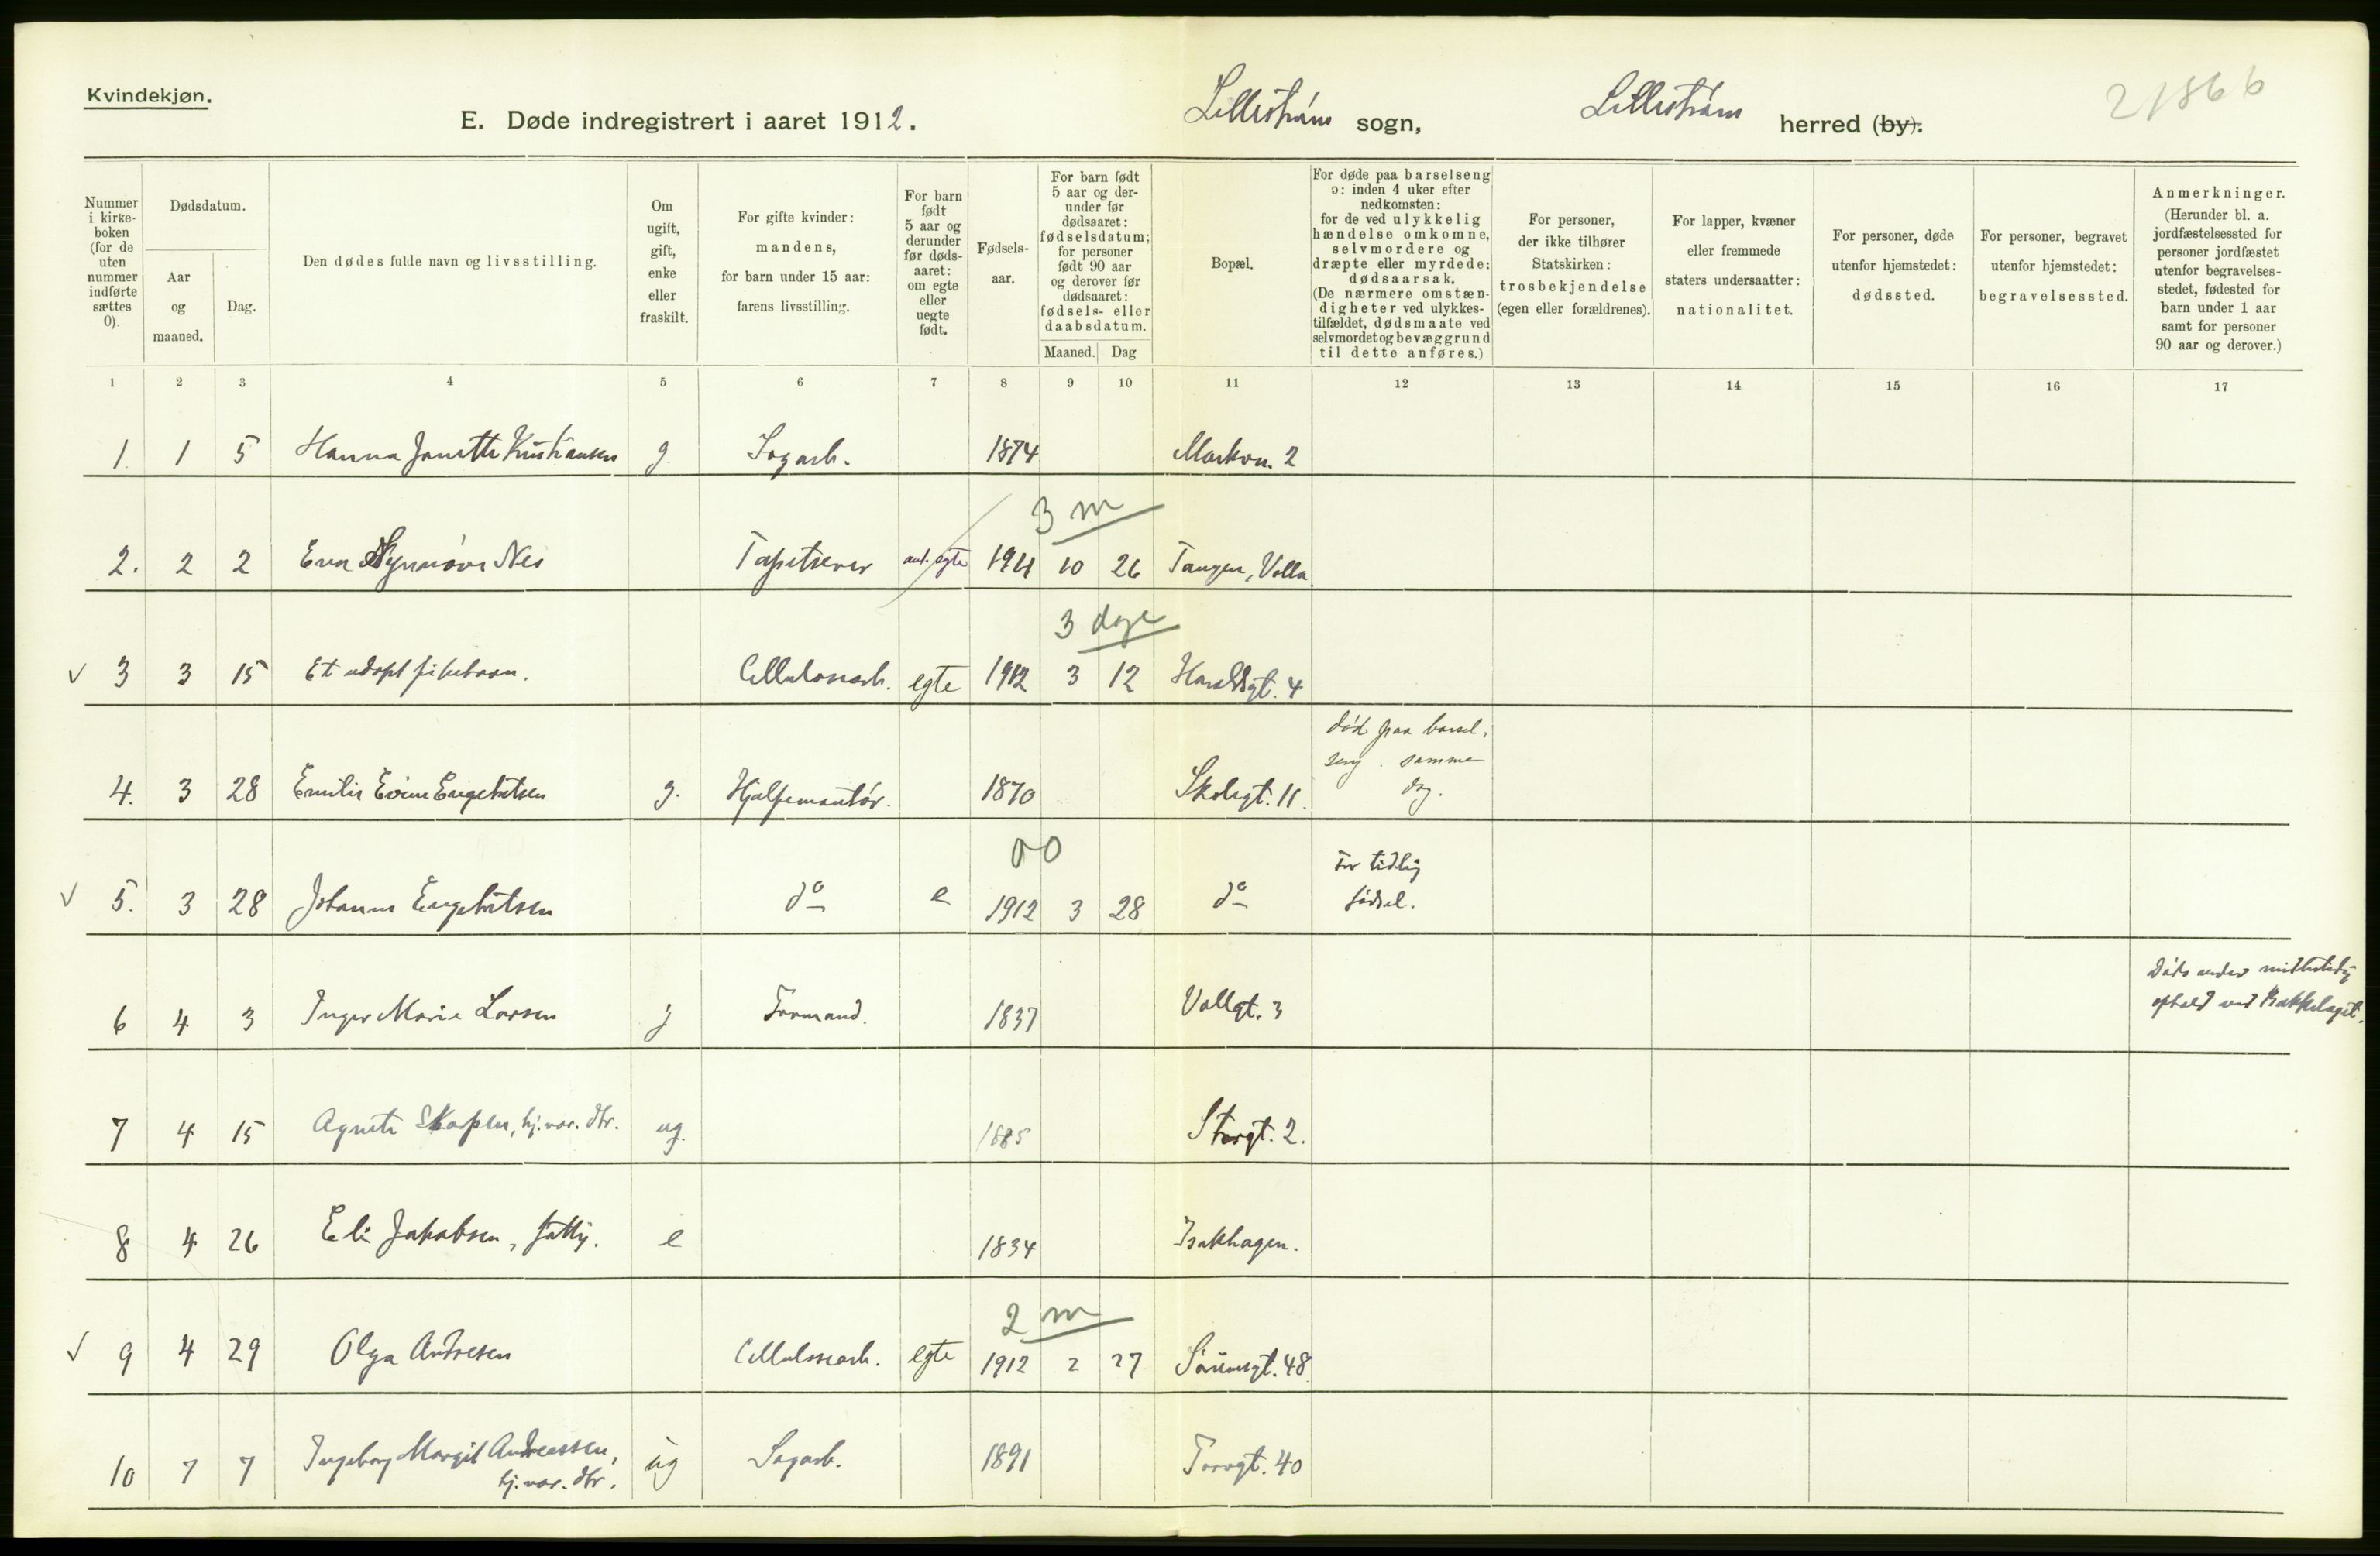 Kvindekjøn.
E. Døde indregistrert i aaret 1912.
Lillestrøm sogn,
Lillestrøm herred (by).
21866
Nummer i kirke-boken (for de uten nummer indførte sættes 0).
Dødsdatum.
Aar og maaned.
Dag.
Den dødes fulde navn og livsstilling.
Om ugift, gift, enke eller fraskilt.
For gifte kvinder: mandens, for barn under 15 aar: farens livsstilling.
For barn født 5 aar og derunder før døds-aaret: om egte eller uegte født.
Fødsels-aar.
For barn født 5 aar og der-under før dødsaaret: fødselsdatum; for personer født 90 aar og derover før dødsaaret: fødsels- eller daabsdatum.
Maaned. Dag
Bopæl.
For døde paa barselseng ɔ: inden 4 uker efter nedkomsten: for de ved ulykkelig hændelse omkomne, selvmordere og dræpte eller myrdede: dødsaarsak. (De nærmere omstæn-digheter ved ulykkes-tilfældet, dødsmaate ved selvmordet og bevæggrund til dette anføres.)
For personer, der ikke tilhører Statskirken: trosbekjendelse (egen eller forældrenes).
For lapper, kvæner eller fremmede staters undersaatter: nationalitet.
For personer, døde utenfor hjemstedet: dødssted.
For personer, begravet utenfor hjemstedet: begravelsessted.
Anmerkninger. (Herunder bl. a. jordfæstelsessted for personer jordfæstet utenfor begravelses-stedet, fødested for barn under 1 aar samt for personer 90 aar og derover.)
1 2 3 4 5 6 7 8 9 10 11 12 13 14 15 16 17
1. 1 5 Hanna Janette Kristiansen g. Sagarb. 1874 Markvn. 2
3 m
2. 2 2 Eva Synnøve Nes Tapetserer egte 1911 10 26 Tangen, Volla
3 dage
3 3 15 Et udøpt pikebarn. Cellulosearb. egte 1912 3 12 Haraldsgt. 4
død paa barsel-
seng samme
dag.
4. 3 28 Emilie Engebretsen g. Hjælpemontør. 1870 Skolegt. 11.
00
For tidlig
fødsel.
5. 3 28 Johanne Engebretsen do e 1912 3 28 do
Døde under midlertidig
ophold ved Bækkelaget.
6 4 3 Inger Marie Larsen g Formand. 1837 Vollgt. 3
7 4 15 Agnete Skarpsen, hj.vær. dtr. ug. 1885 Storgt. 2.
8 4 26 Eli Jakobsen, fattig. e 1834 Isakhagen.
2 m
9 4 29 Olga Andresen Cellulosearb. egte 1912 2 27 Sørumsgt. 48
10 7 7 Ingeborg Margit Andreassen, ug Sagarb. 1891 Torvgt. 40
hj.vær. dtr.